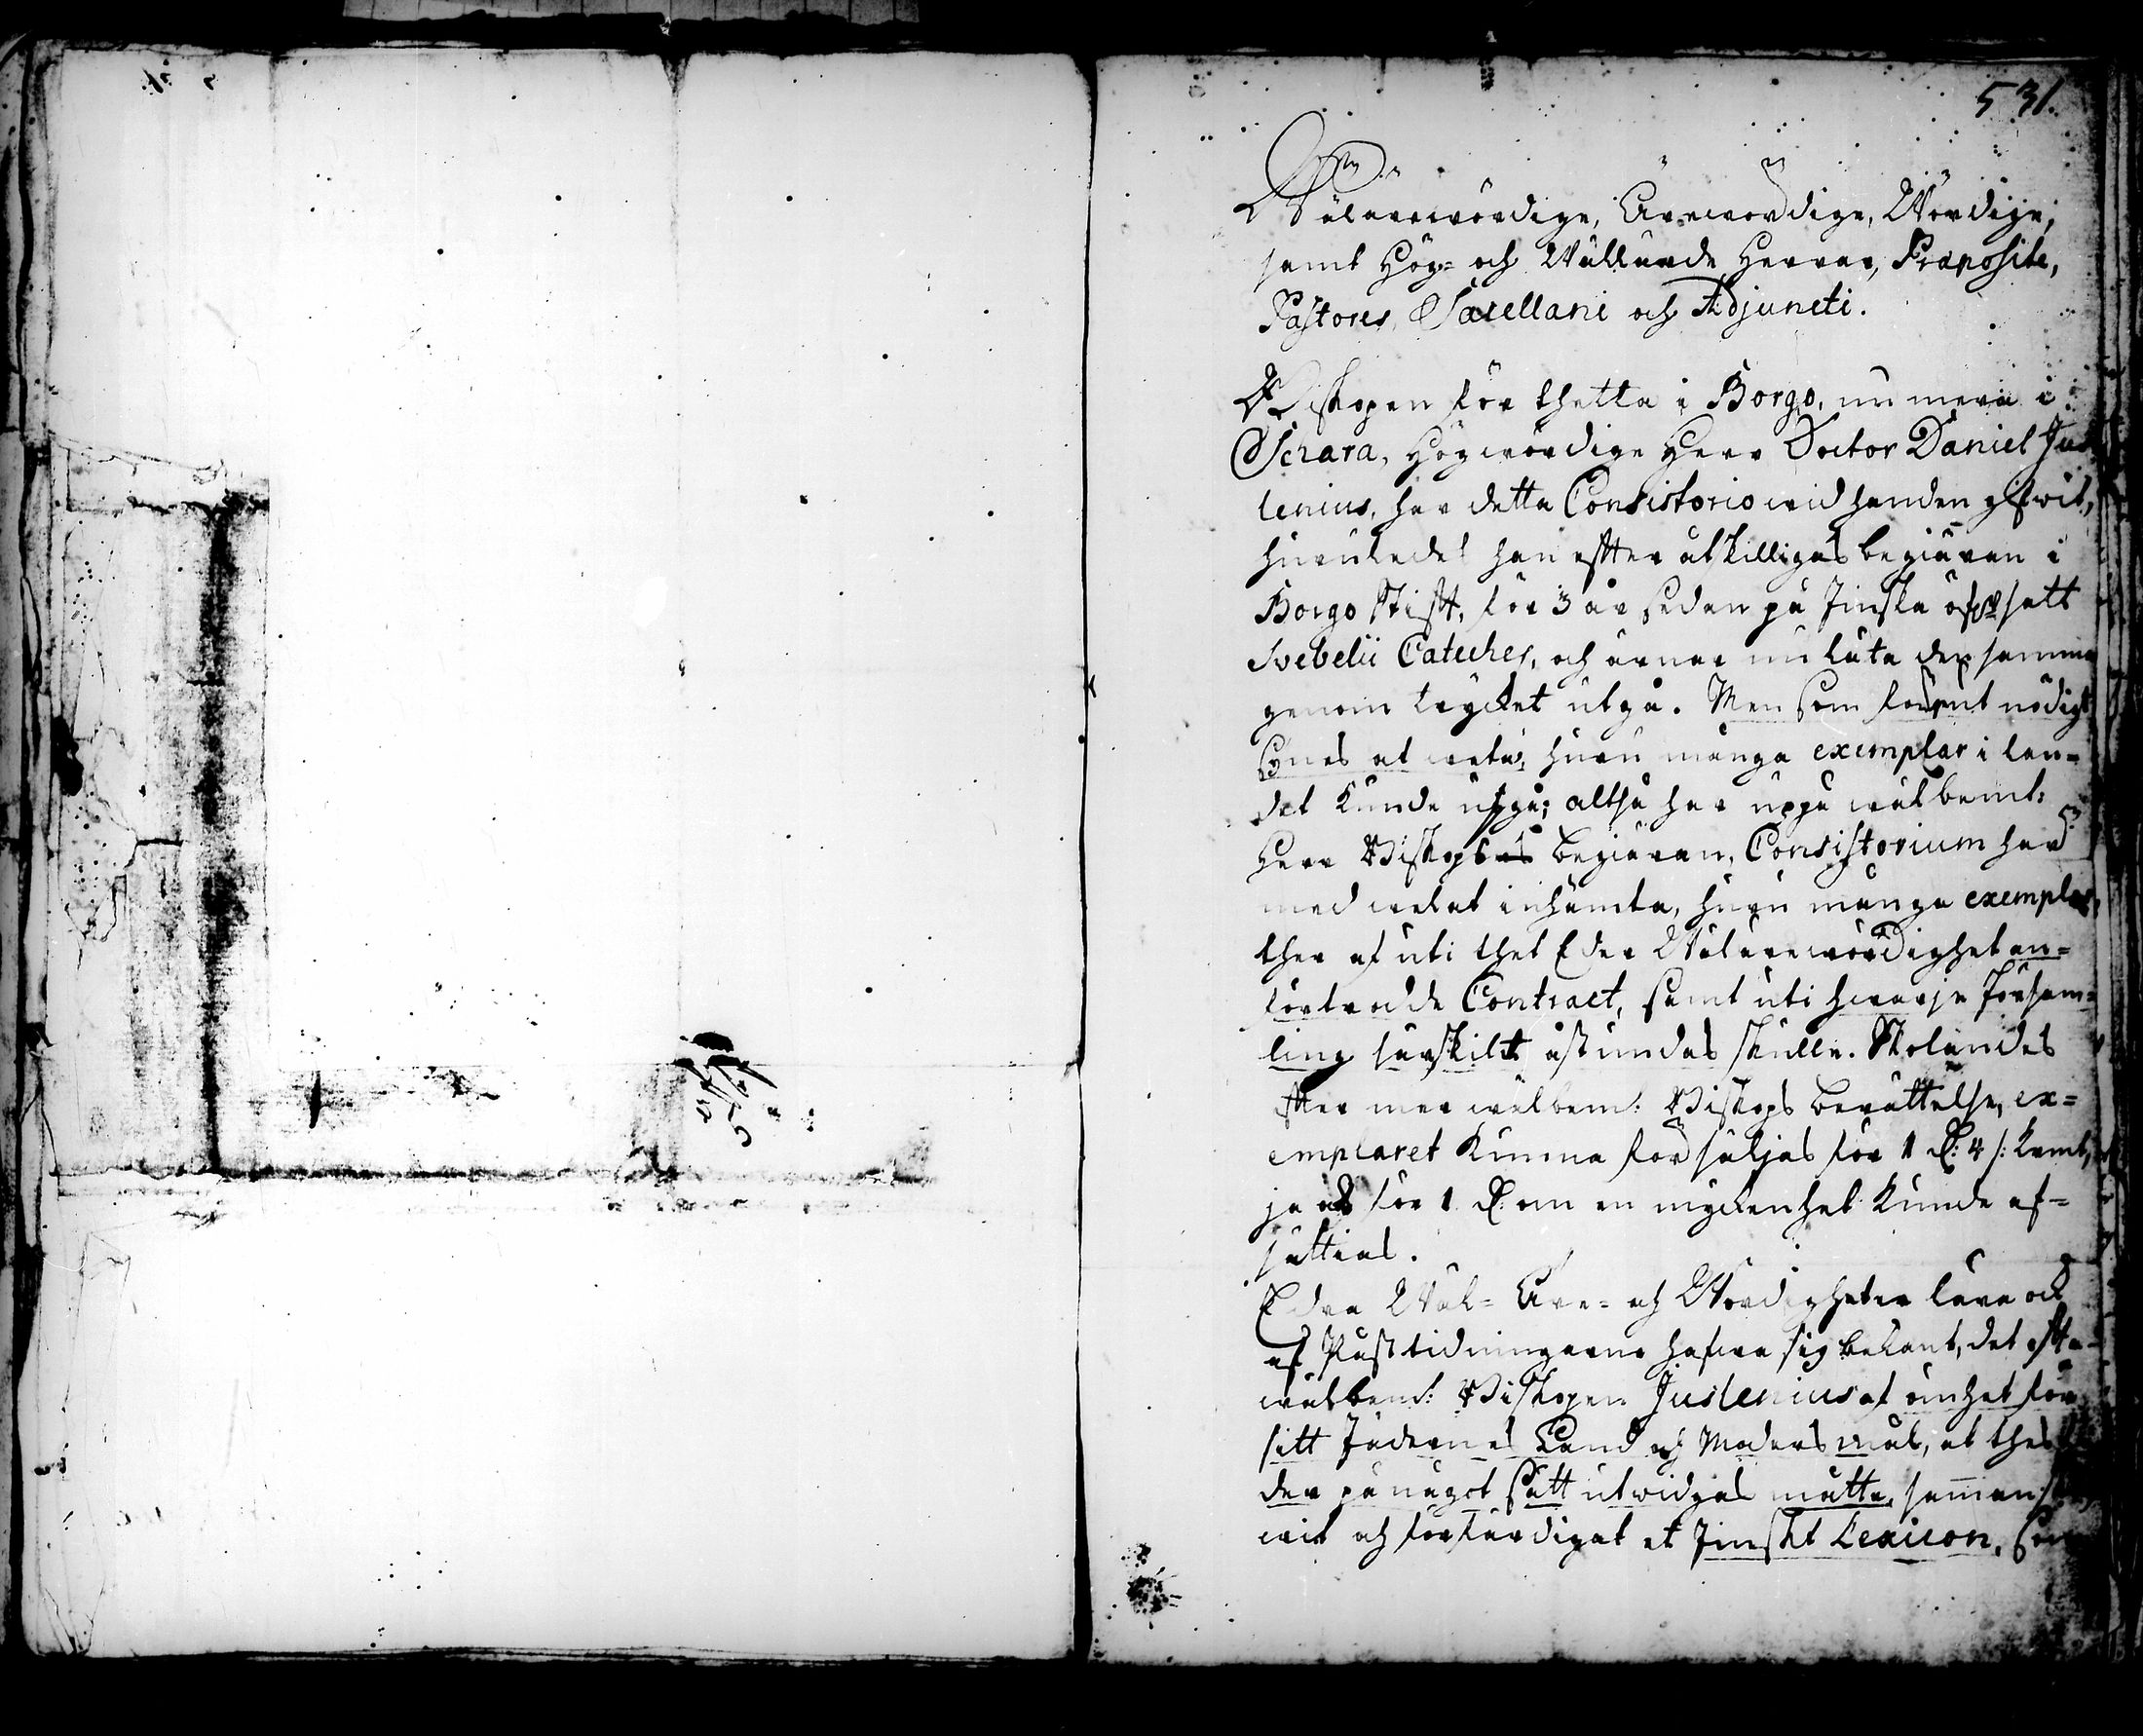 531.
Wälärewördige, Ärewördige, Wördige,
samt Hög- och Wällärde Herrar, Præposite,
Pastores, Sacellani och Adjuncti.
Biskopen för thetta i Borgo, nu mera i
Schara, Högwördige Herr Doctor Daniel Jus
lenius, har detta Consistorio wid handen gifwit,
huruledes han efter åtskilligas begiäran i
Borgo Stift, för 3 år sedan på Finska öfwersatt
Svebelii Cateches, och ärnar nu låta den samma
genom trycket utgå. Men som förut nödigt
Synes at weta, huru många exemplar i lan-
det kunde utgå; altså har uppå wälbemt:
Herr Biskopens begiäran, Consistorium här
med welat inhämta, huru många exemplar
ther af uti thet Eder Wälärewördighet an-
förtrodde Contract, samt uti hwarje Försam-
ling särskilt åstundas skulle. Skolandes
efter mer wälbem: Biskops berättelse, ex-
emplaret kunna försäljas för 1 d: 4 s: kmt,
ja och för 1 d: om en myckenhet kunde af-
sättias.
Edra Wäl- Äre- och Wördigheter lära ock
af Påsttidningarne hafwa sig bekant, det ofta
wälbem: Biskopen Juslenius af ömhet för
sitt Fädernes Land och Moders mål, at thes
der på något sätt utwidgas måtte, samman
wit och förfärdigat et Finskt Lexicon, som